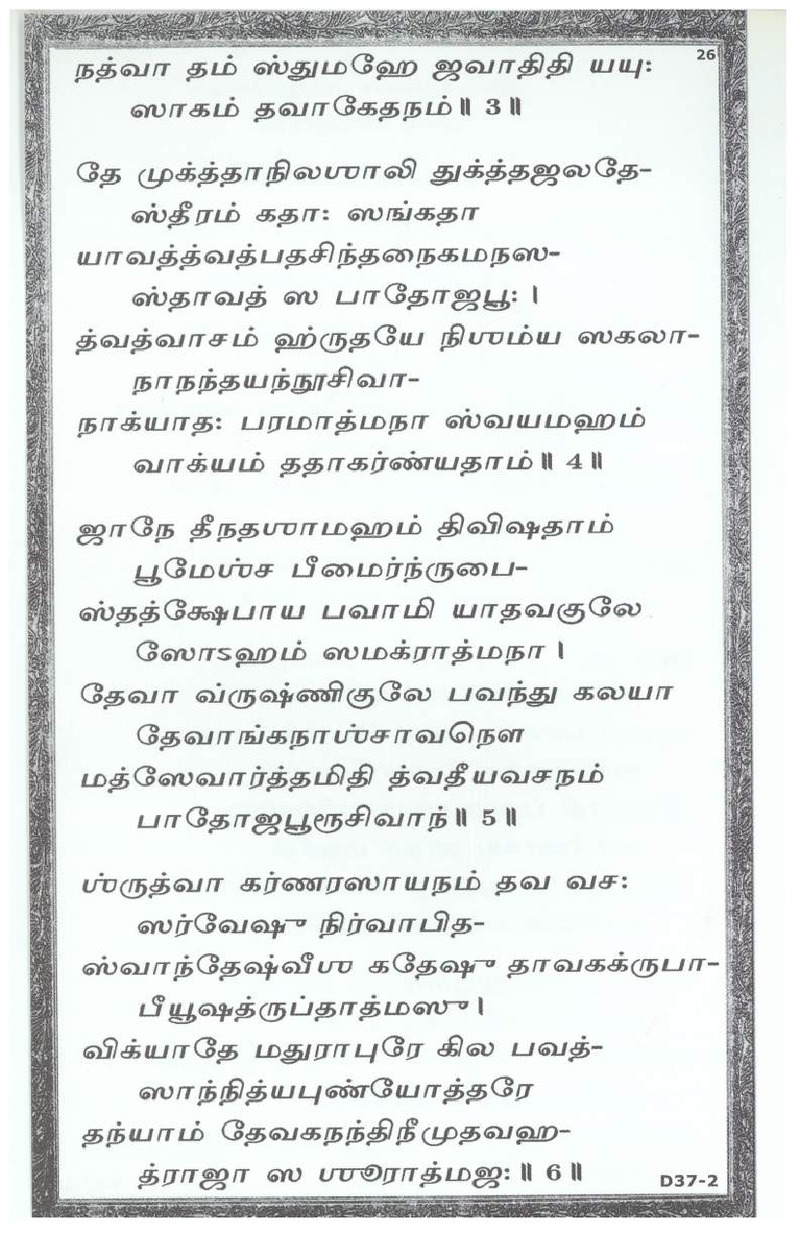 26
நத்வா தம் ஸ்துமஹே ஜவாதிதி யயு:
ஸாகம் தவாகேதநம்॥ 3॥
தே முக்த்தாநிலஶாலி துக்த்தஜலதே-
ஸ்தீரம் கதா: ஸங்கதா
யாவத்த்வத்பதசிந்தநைகமநஸ-
ஸ்தாவத் ஸ பாதோஜபூ: ।
த்வத்வாசம் ஹ்ருதயே நிஶம்ய ஸகலா-
நாநந்தயந்நூசிவா-
நாக்யாத: பரமாத்மநா ஸ்வயமஹம்
வாக்யம் ததாகர்ண்யதாம்॥ 4॥
ஜாநே தீநதஶாமஹம் திவிஷதாம்
பூமேஶ்ச பீமைர்ந்ருபை-
ஸ்தத்க்ஷேபாய பவாமி யாதவகுலே
ஸோऽஹம் ஸமக்ராத்மநா ।
தேவா வ்ருஷ்ணிகுலே பவந்து கலயா
தேவாங்கநாஶ்சாவநௌ
மத்ஸேவார்த்தமிதி த்வதீயவசநம்
பாதோஜபூரூசிவாந்॥ 5॥
ஶ்ருத்வா கர்ணரஸாயநம் தவ வச:
ஸர்வேஷு நிர்வாபித-
ஸ்வாந்தேஷ்வீஶ கதேஷு தாவகக்ருபா-
பீயூஷத்ருப்தாத்மஸு।
விக்யாதே மதுராபுரே கில பவத்-
ஸாந்நித்யபுண்யோத்தரே
தந்யாம் தேவகநந்திநீமுதவஹ-
த்ராஜா ஸ ஶூராத்மஜ:॥ 6॥
D37-2